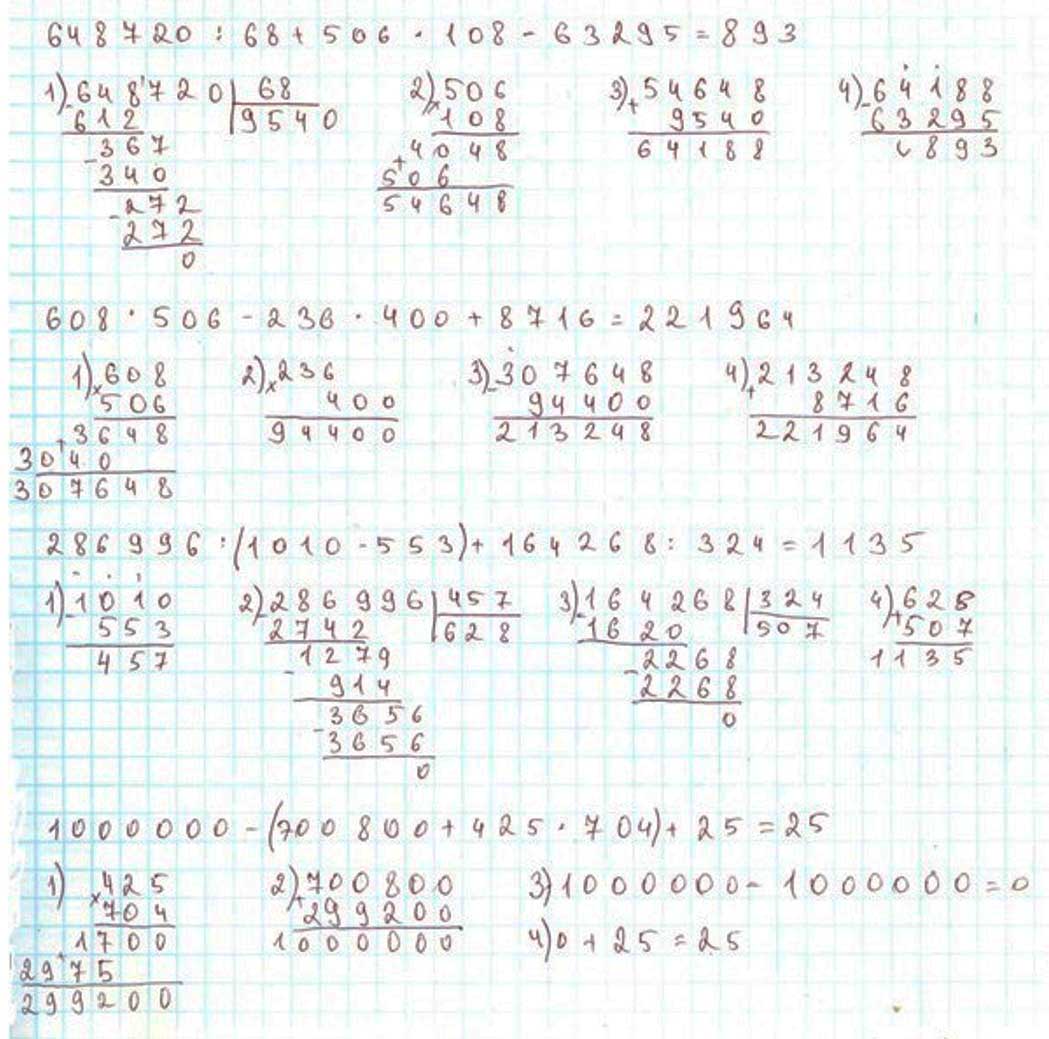 648720 : 68 + 506 · 108 - 63295 = 893
1) 648720 | 68   2) 506   3) 54648   4) 64188
- 612 | 9540   × 108   + 9540   - 63295
- 367   4048   64188   893
340   + 506
- 272   54648
272
0
608 · 506 - 236 · 400 + 8716 = 221964
1) 608   2) 236   3) 307648   4) 213248
× 506   × 400   - 94400   + 8716
3648   94400   213248   221964
+ 3040
307648
286996 : (1010 - 553) + 164268 : 324 = 1135
1) 1010   2) 286996 | 457   3) 164268 | 324   4) 628
- 553   - 2742 | 628   - 1620 | 507   + 507
457   1279   - 2268   1135
- 914   2268
3656   0
- 3656
0
1000000 - (700800 + 425 · 704) + 25 = 25
1) 425   2) 700800   3) 1000000 - 1000000 = 0
× 704   + 299200   4) 0 + 25 = 25
1700   1000000
+ 2975
299200